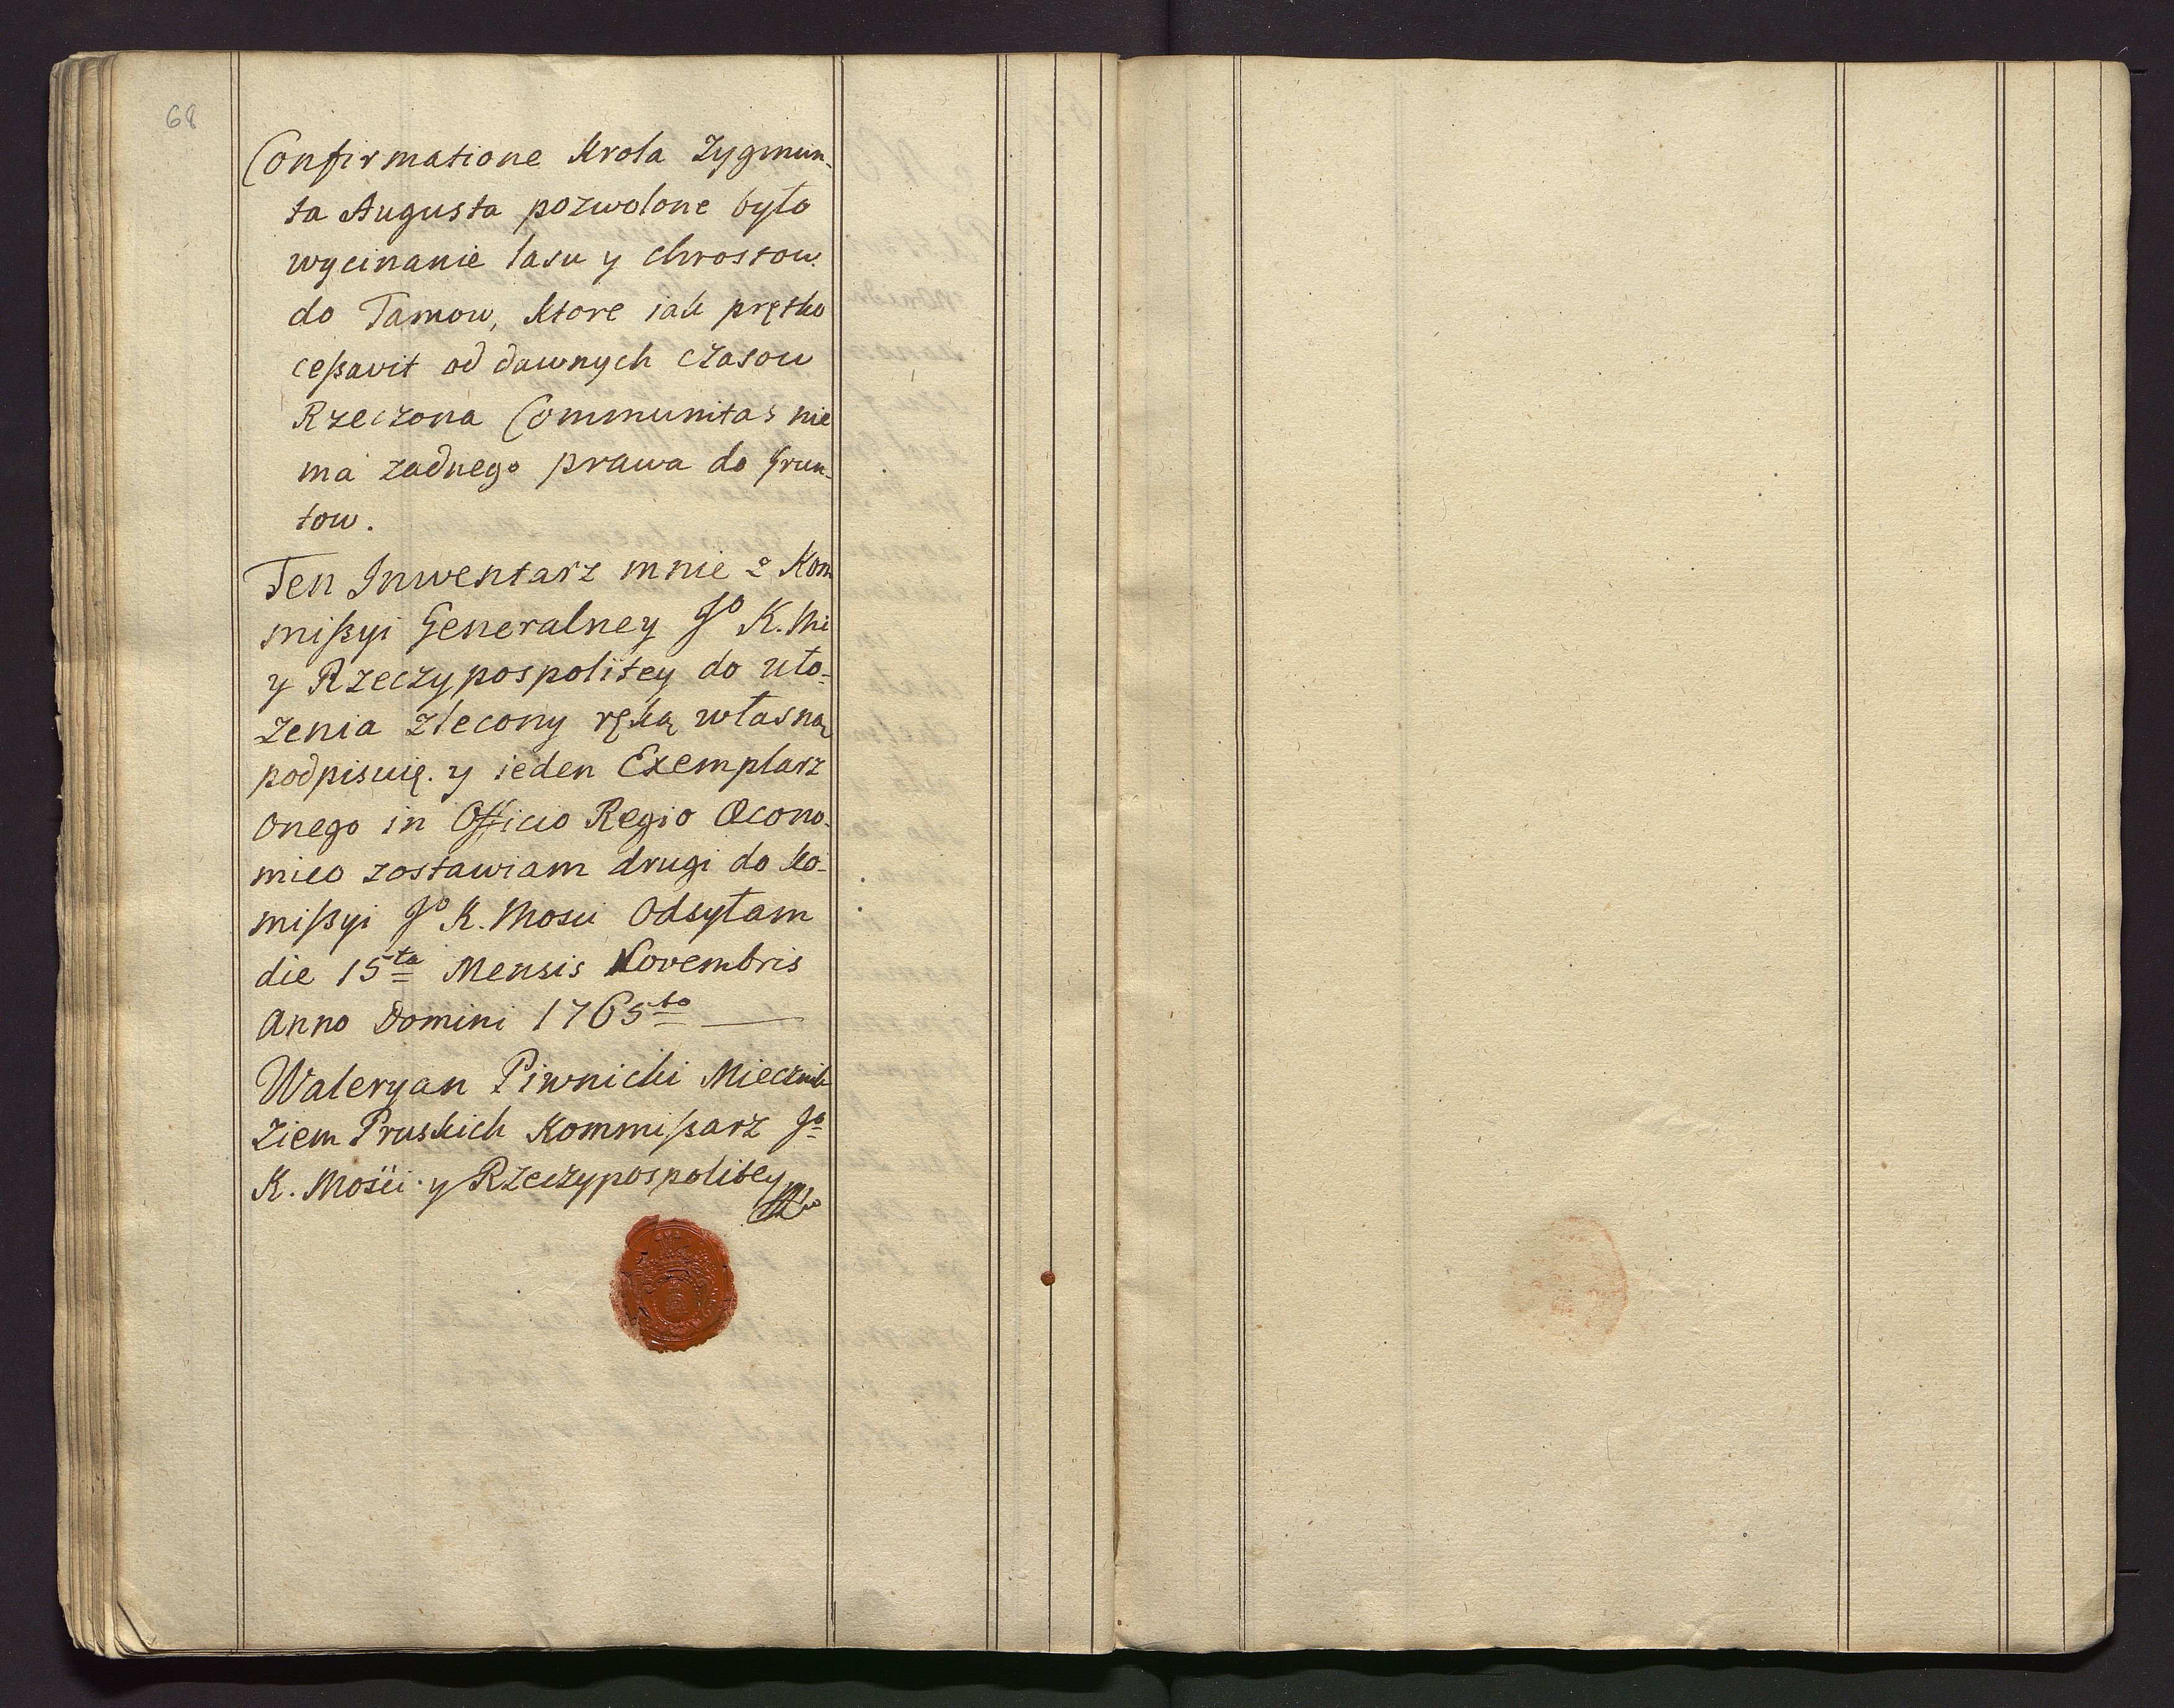 68
Confirmatione Krola Zygmun-
ta Augusta pozwolone było
wycinanie lasu y chrostow
do Tamow, ktore iak prętko
ceßavit od dawnych czasow
Rzeczona Communitas nie
ma zadnego prawa do Grun-
tow.
Ten Inwentarz mnie z Kom
mißyi Generalney Jo K. Mi
y Rzeczypospolitey do uło-
zenia zlecony ręką własną
podpisuię. y ieden Exemplarz
onego in Officio Regio Œcono-
mico zostawiam drugi do ko-
mißyi Jo K. Mosci Odsyłam
die 15ta Mensis Novembris
Anno Domini 1765to
Waleryan Piwnicki Miecznik
Ziem Pruskich Kommißarz Jo
K. Mośći y Rzeczypospolitey